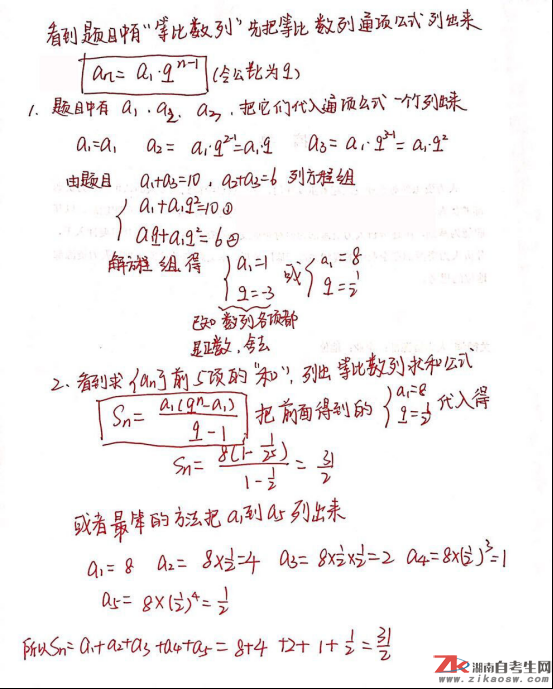 看到题目中有"等比数列"先把等比数列通项公式列出来
an = a1·q^(n-1) (令公比为q)
1. 题目中有 a1、a2、a3, 把它们代入通项公式一个个列出来
a1=a1 a2= a1·q^(2-1)=a1q a3= a1·q^(3-1)= a1·q²
由题目 a1+a3=10, a2+a3=6 列方程组
{ a1+a1q²=10 ①
a1q+a1q²=6 ②
解方程组得 { a1=1 q=-3 或 { a1=8 q=1/2
已知数列各项都
是正数,舍去
2. 看到求{an}前5项的"和", 列出等比数列求和公式
Sn= a1(q^n-a1)/(q-1) 把前面得到的 { a1=8 q=1/2 代入得
Sn= 8(1-1/2^5)/(1-1/2) = 31/2
或者最笨的方法把a1到a5列出来
a1=8 a2= 8×1/2=4 a3= 8×1/2×1/2=2 a4=8×(1/2)^3=1
a5= 8×(1/2)^4=1/2
所以Sn= a1+a2+a3+a4+a5= 8+4+2+1+1/2=31/2
ZK 湖南自考生网
www.zikaosw.com